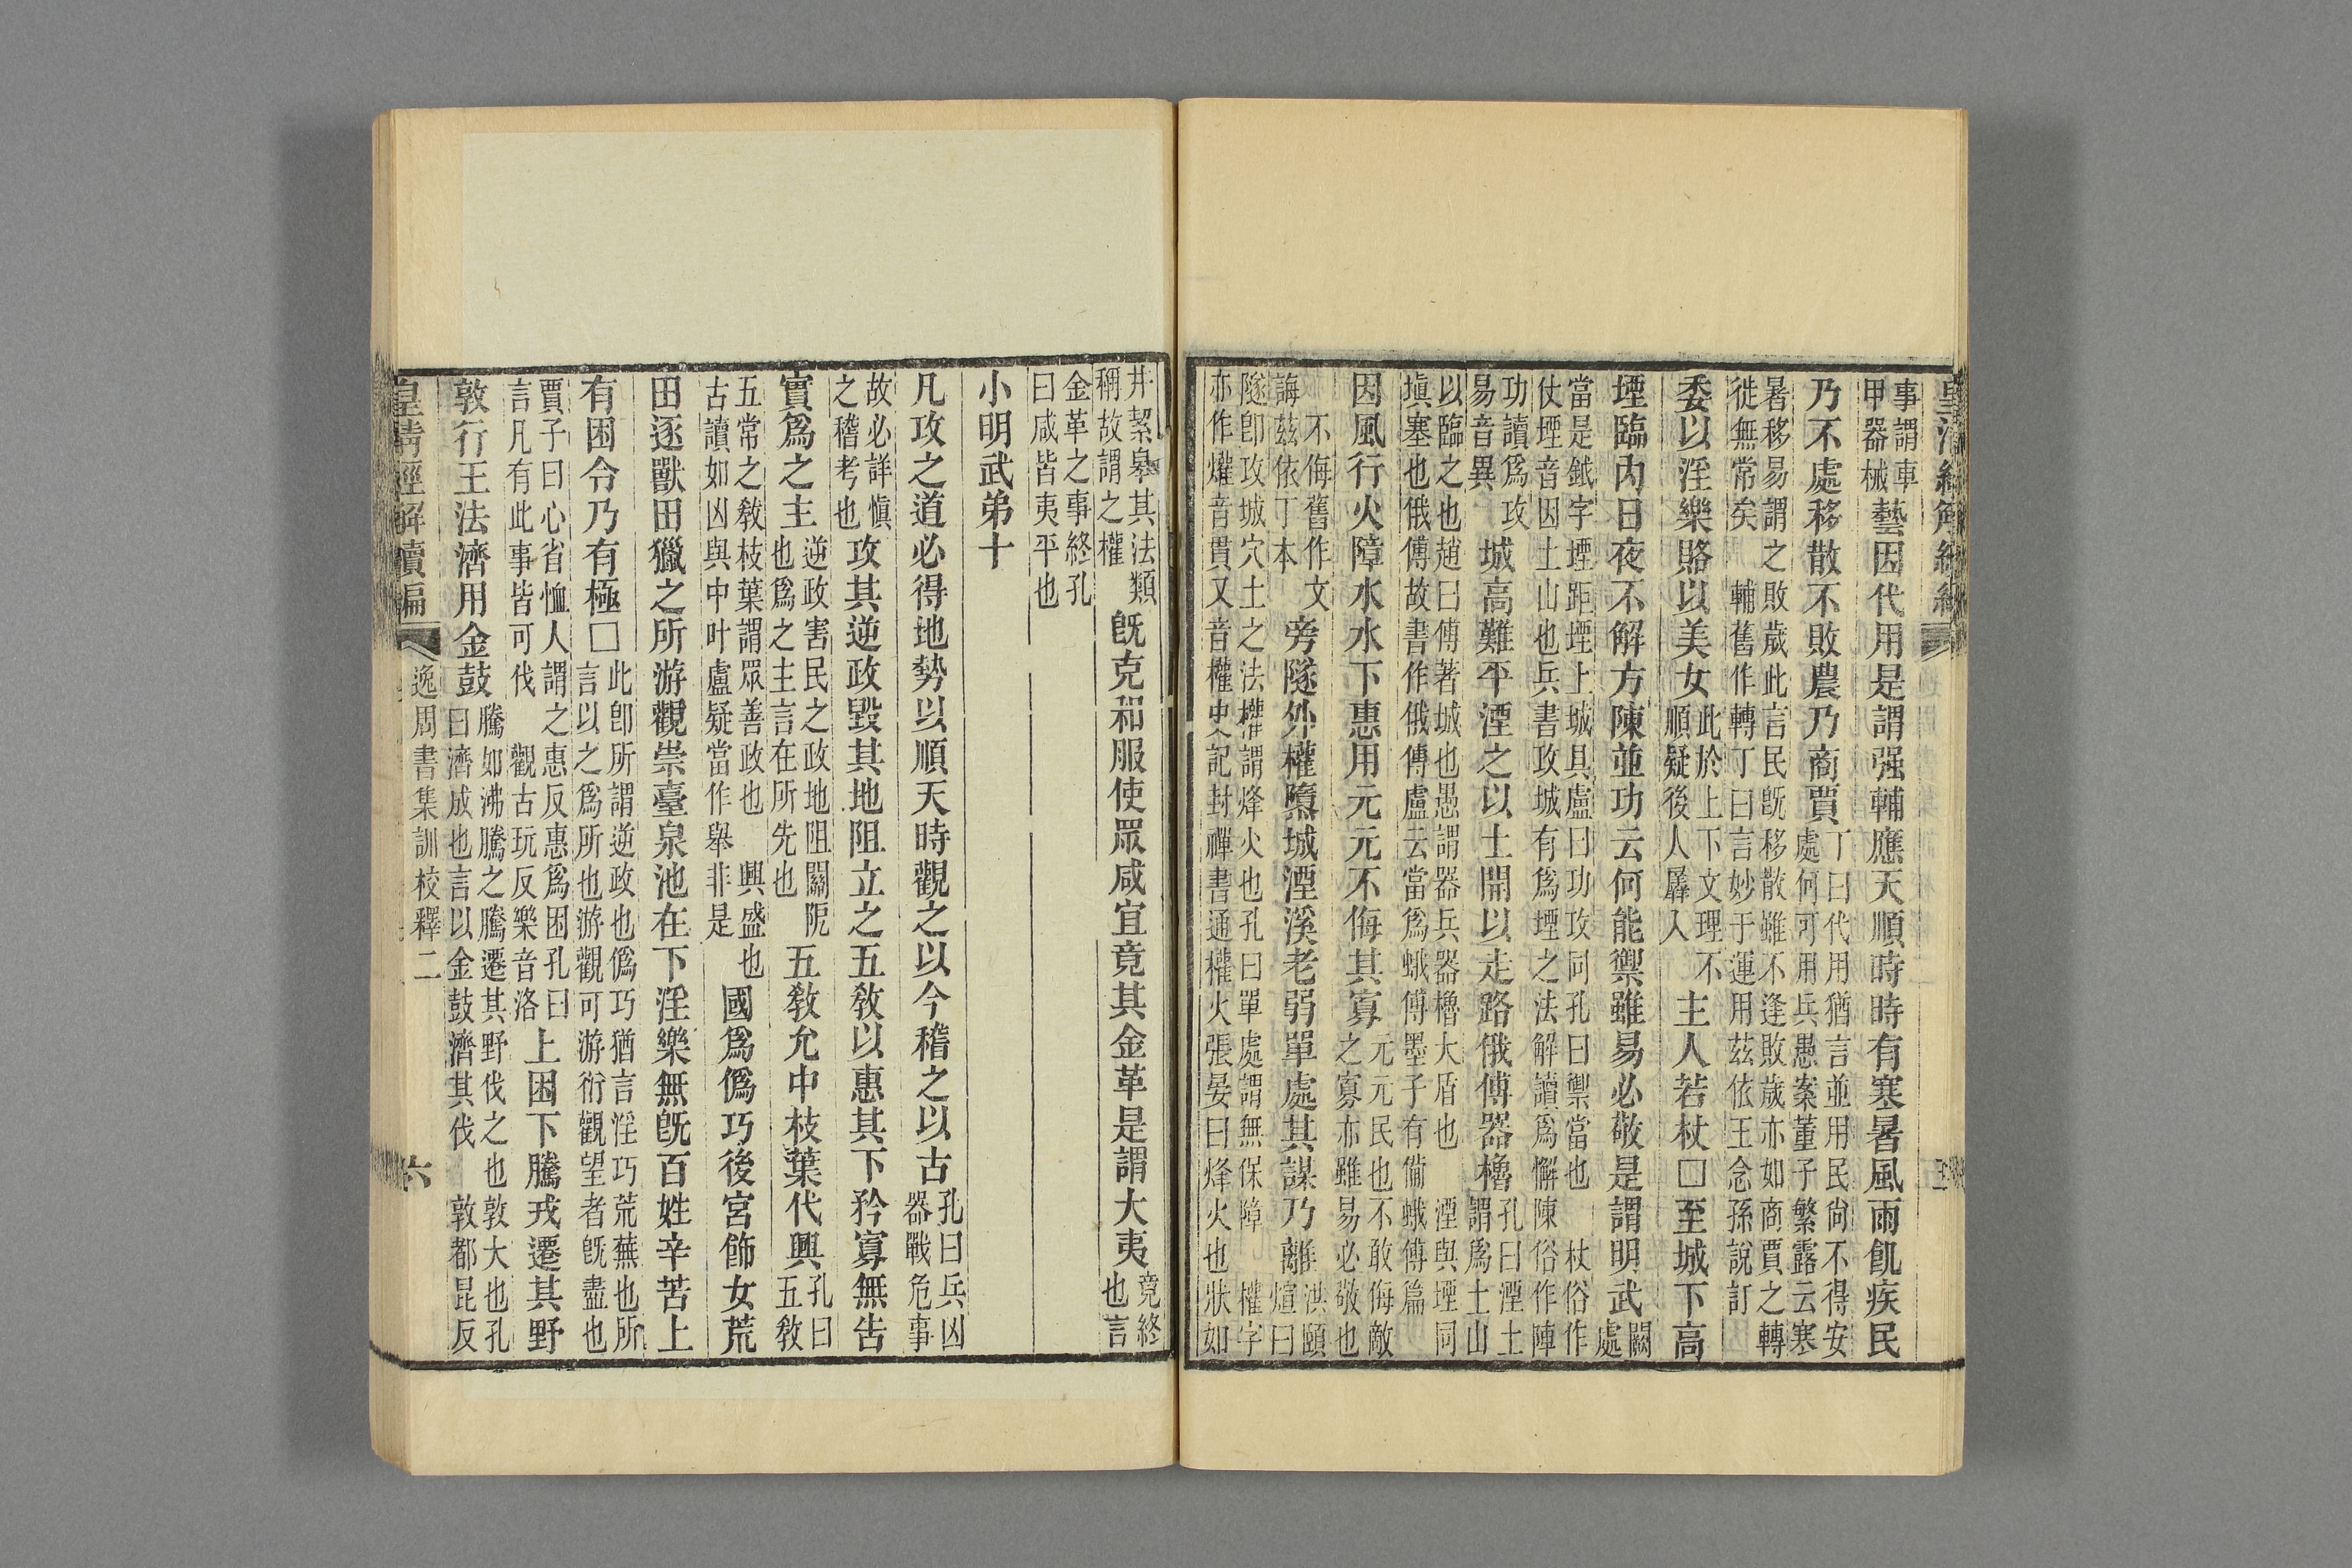 皇清經解續編 五
事謂車甲器械藝因代用是謂强輔應天順時時有寒暑風雨飢疾民
乃不處移散不敗農乃商賈丁曰代用猶言並用民尙不得安處何可用兵愚案董子繁露云寒
暑移易謂之敗歲此言民旣移散雖不逢敗歲亦如商賈之轉徙無常矣 輔舊作轉丁曰言妙于運用茲依王念孫說訂
委以淫樂賂以美女此於上下文理不順疑後人羼入主人若杖□至城下高
堙臨內日夜不解方陳並功云何能禦雖易必敬是謂明武闕處
當是鉞字堙距堙上城具盧曰功攻同孔曰禦當也 杖俗作仗堙音因土山也兵書攻城有爲堙之法解讀爲懈陳俗作陣
功讀爲攻易音異城高難平湮之以土開以走路俄傅器櫓孔曰湮土謂爲土山
以臨之也趙曰傅著城也愚謂器兵器櫓大盾也 湮與堙同塡塞也俄傅故書作俄傳盧云當爲蛾傅墨子有備蛾傅篇
因風行火障水水下惠用元元不侮其寡元元民也不敢侮敵之寡亦雖易必敬也
不侮舊作文誨茲依丁本旁隧外權隳城湮溪老弱單處其謀乃離洪頤煊曰
隧卽攻城穴土之法權謂烽火也孔曰單處謂無保障 權字亦作爟音貫又音權史記封禪書通權火張晏曰烽火也狀如
井絜皋其法類稱故謂之權旣克和服使眾咸宜竟其金革是謂大夷竟終也言
金革之事終孔曰咸皆夷平也
小明武弟十
凡攻之道必得地勢以順天時觀之以今稽之以古孔曰兵凶器戰危事
故必詳愼之稽考也攻其逆政毀其地阻立之五敎以惠其下矜寡無吿
實爲之主逆政害民之政地阻關阨也爲之主言在所先也五敎允中枝葉代興孔曰五敎
五常之敎枝葉謂眾善政也 興盛也古讀如凶與中叶盧疑當作舉非是國爲僞巧後宮飾女荒
田逐獸田獵之所游觀崇臺泉池在下淫樂無旣百姓辛苦上
有困令乃有極□此卽所謂逆政也僞巧猶言淫巧荒蕪也所言以之爲所也游觀可游衍觀望者旣盡也
賈子曰心省恤人謂之惠反惠爲困孔曰言凡有此事皆可伐 觀古玩反樂音洛上困下騰戎遷其野
敦行王法濟用金鼓騰如沸騰之騰遷其野伐之也敦大也孔曰濟成也言以金鼓濟其伐 敦都昆反
皇清經解續編 逸周書集訓校釋二 六